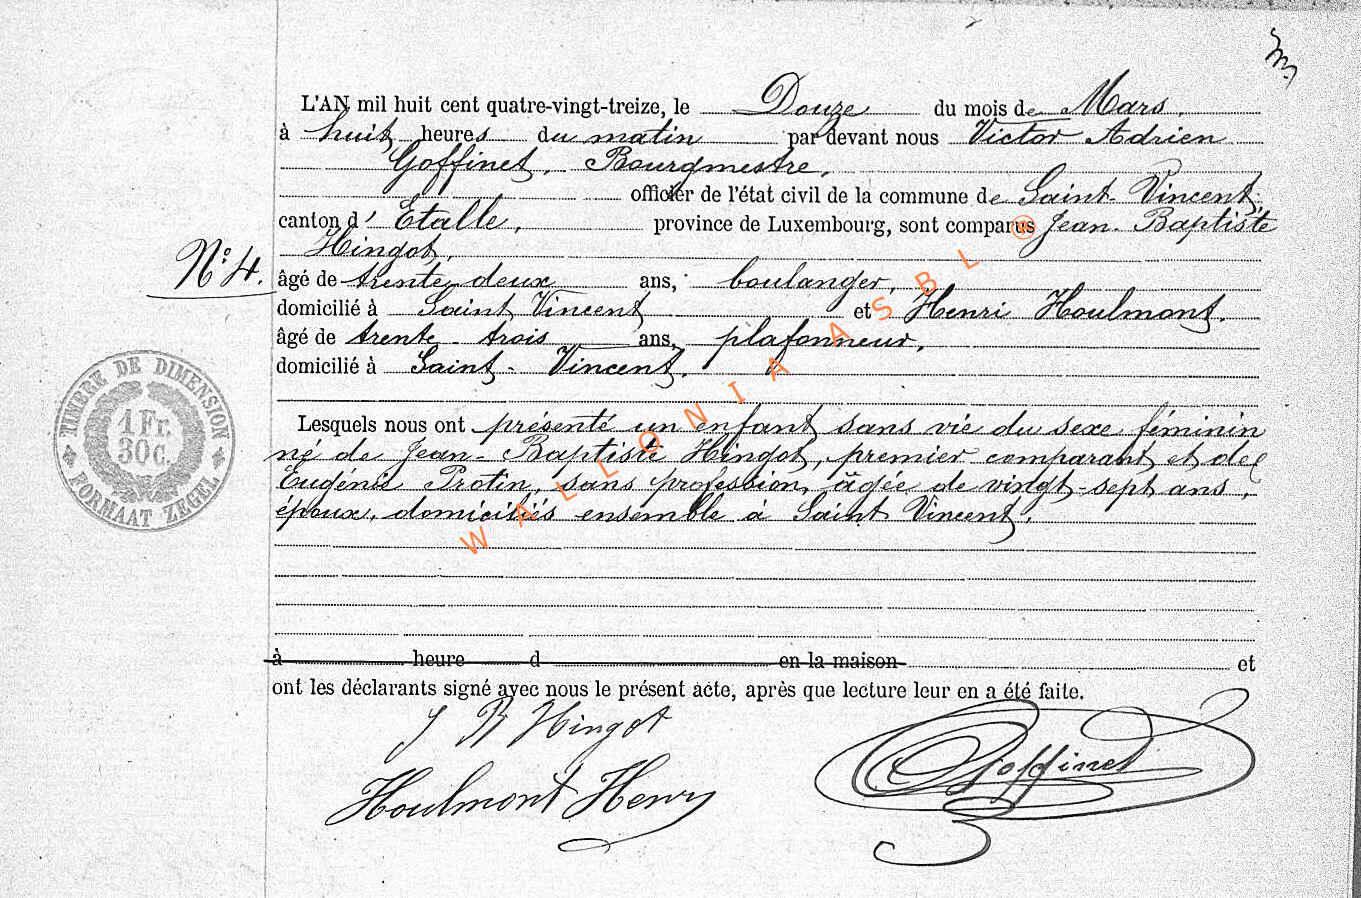 L'AN mil huit cent quatre-vingt-treize, le Douze du mois de Mars.
à huit heures du matin par devant nous Victor Adrien
Goffinet, Bourgmestre,
officier de l'état civil de la commune de Saint-Vincent,
canton d' Etalle, province de Luxembourg, sont comparus Jean-Baptiste
Hingot,
N° 4.
âgé de trente-deux ans, boulanger,
domicilié à Saint Vincent et Henri Houlmont.
âgé de trente-trois ans, plafonneur,
domicilié à Saint-Vincent.
TIMBRE DE DIMENSION
1 Fr.
30 C.
FORMAAT ZEGEL
Lesquels nous ont présenté un enfant sans vie du sexe féminin
né de Jean-Baptiste Hingot, premier comparant et de
Eugénie Protin, sans profession, âgée de vingt-sept ans,
époux, domiciliés ensemble à Saint Vincent.
WALLONIA ASBL ®
à heure d en la maison et
ont les déclarants signé avec nous le présent acte, après que lecture leur en a été faite.
J B Hingot
Houlmont Henry
Goffinet